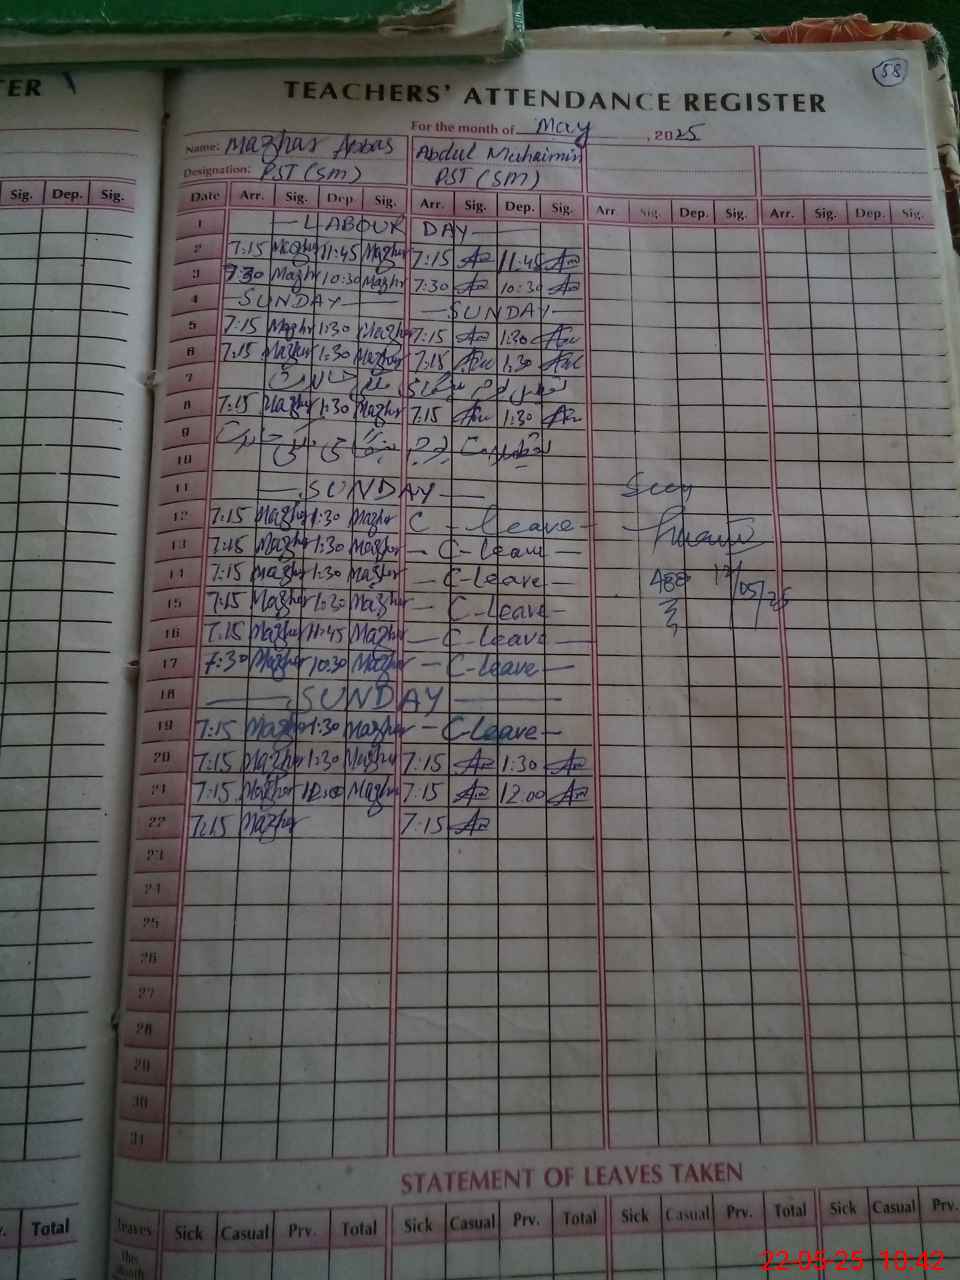 TER
58
TEACHERS' ATTENDANCE REGISTER
For the month of May, 2025
Name: Mazhar Abbas Abdul Muhaimin
Designation: PST (SM) PST (SM)
Sig. Dep. Sig. Date Arr. Sig. Dep. Sig. Arr. Sig. Dep. Sig. Arr. Sig. Dep. Sig. Arr. Sig. Dep. Sig.
1 — LABOUR DAY —
2 7:15 Mazhar 11:45 Mazhar 7:15 11:45
3 7:30 Mazhr 10:30 Mazhr 7:30 10:30
4 — SUNDAY — — SUNDAY —
5 7:15 Mazhr 1:30 Mazhar 7:15 1:30
6 7:15 Mazhar 1:30 Mazhar 7:15 1:30
7
8 7:15 Mazhr 1:30 Mazhr 7:15 1:30
9
10
11 — SUNDAY —
12 7:15 Mazhar 1:30 Mazhar C - leave -
13 7:15 Mazhar 1:30 Mazhar — C-leave —
14 7:15 Mazhar 1:30 Mazhar — C-leave —
15 7:15 Mazhar 1:30 Mazhar — C-leave —
16 7:15 Mazhar 11:45 Mazhar — C-leave —
17 7:30 Mazhar 10:30 Mazhar — C-leave —
18 — SUNDAY —
19 7:15 Mazhar 1:30 Mazhar — C-Leave —
20 7:15 Mazhar 1:30 Mazhar 7:15 1:30
21 7:15 Mazhar 12:00 Mazhar 7:15 12.00
22 7:15 Mazhar 7:15
23
24
25
26
27
28
29
30
31
STATEMENT OF LEAVES TAKEN
Total Leaves Sick Casual Prv. Total Sick Casual Prv. Total Sick Casual Prv. Total Sick Casual Prv.
This
Month
22-05-25 10:42